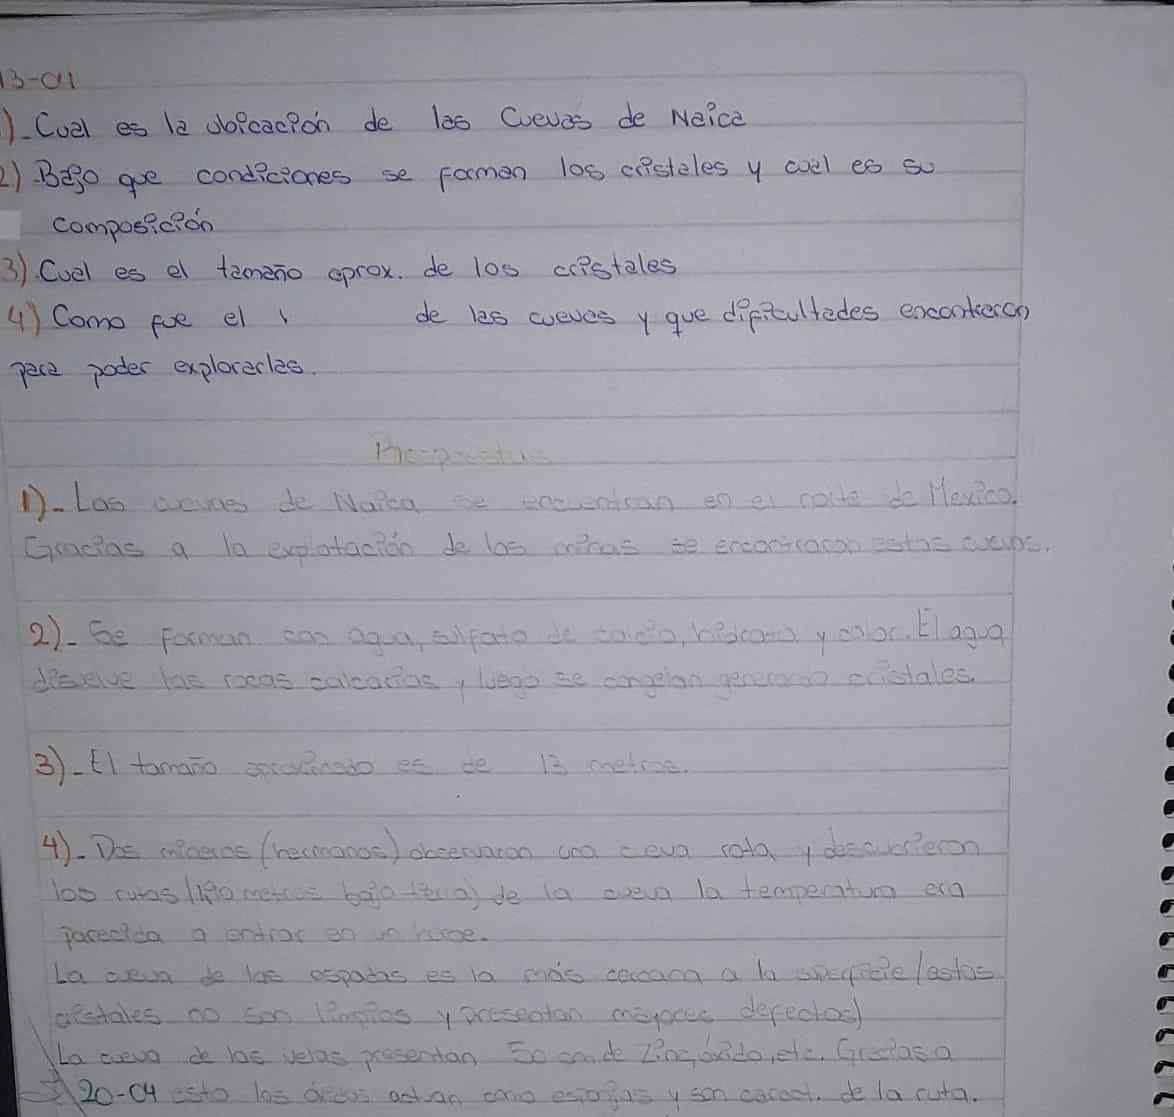 13-04
1)-Cual es la ubicación de las Cuevas de Naica
2)-Bajo que condiciones se forman los cristales y cual es su
composición
3)-Cual es el tamaño aprox. de los cristales
4) Como fue el de las cuevas y que dificultades encontraron
para poder explorarlas.
Respuestas
1)- Las cuevas de Naica se encuentran en el norte de Mexico.
Gracias a la explotación de las minas se encontraron estas cuevas.
2)- Se forman con agua, sulfato de calcio, hidrato y calor. El agua
las rocas calcarias y luego se congelan generando cristales.
3)- El tamaño aproximado es de 13 metros.
4)- Dos mineros (hermanos) observaron una ceva rota y descubrieron
los rutas bajo tierra) de la cueva la temperatura era
parecida a entrar en un
La cueva de las espadas es la más cercana a la superficie (estos
cristales no son limpios y presentan mayores defectos)
La cueva de las velas presentan 50 cm de Zinc, óxido, etc. Gracias a
20-04 esto los actuan como esponjas y son caract. de la ruta.